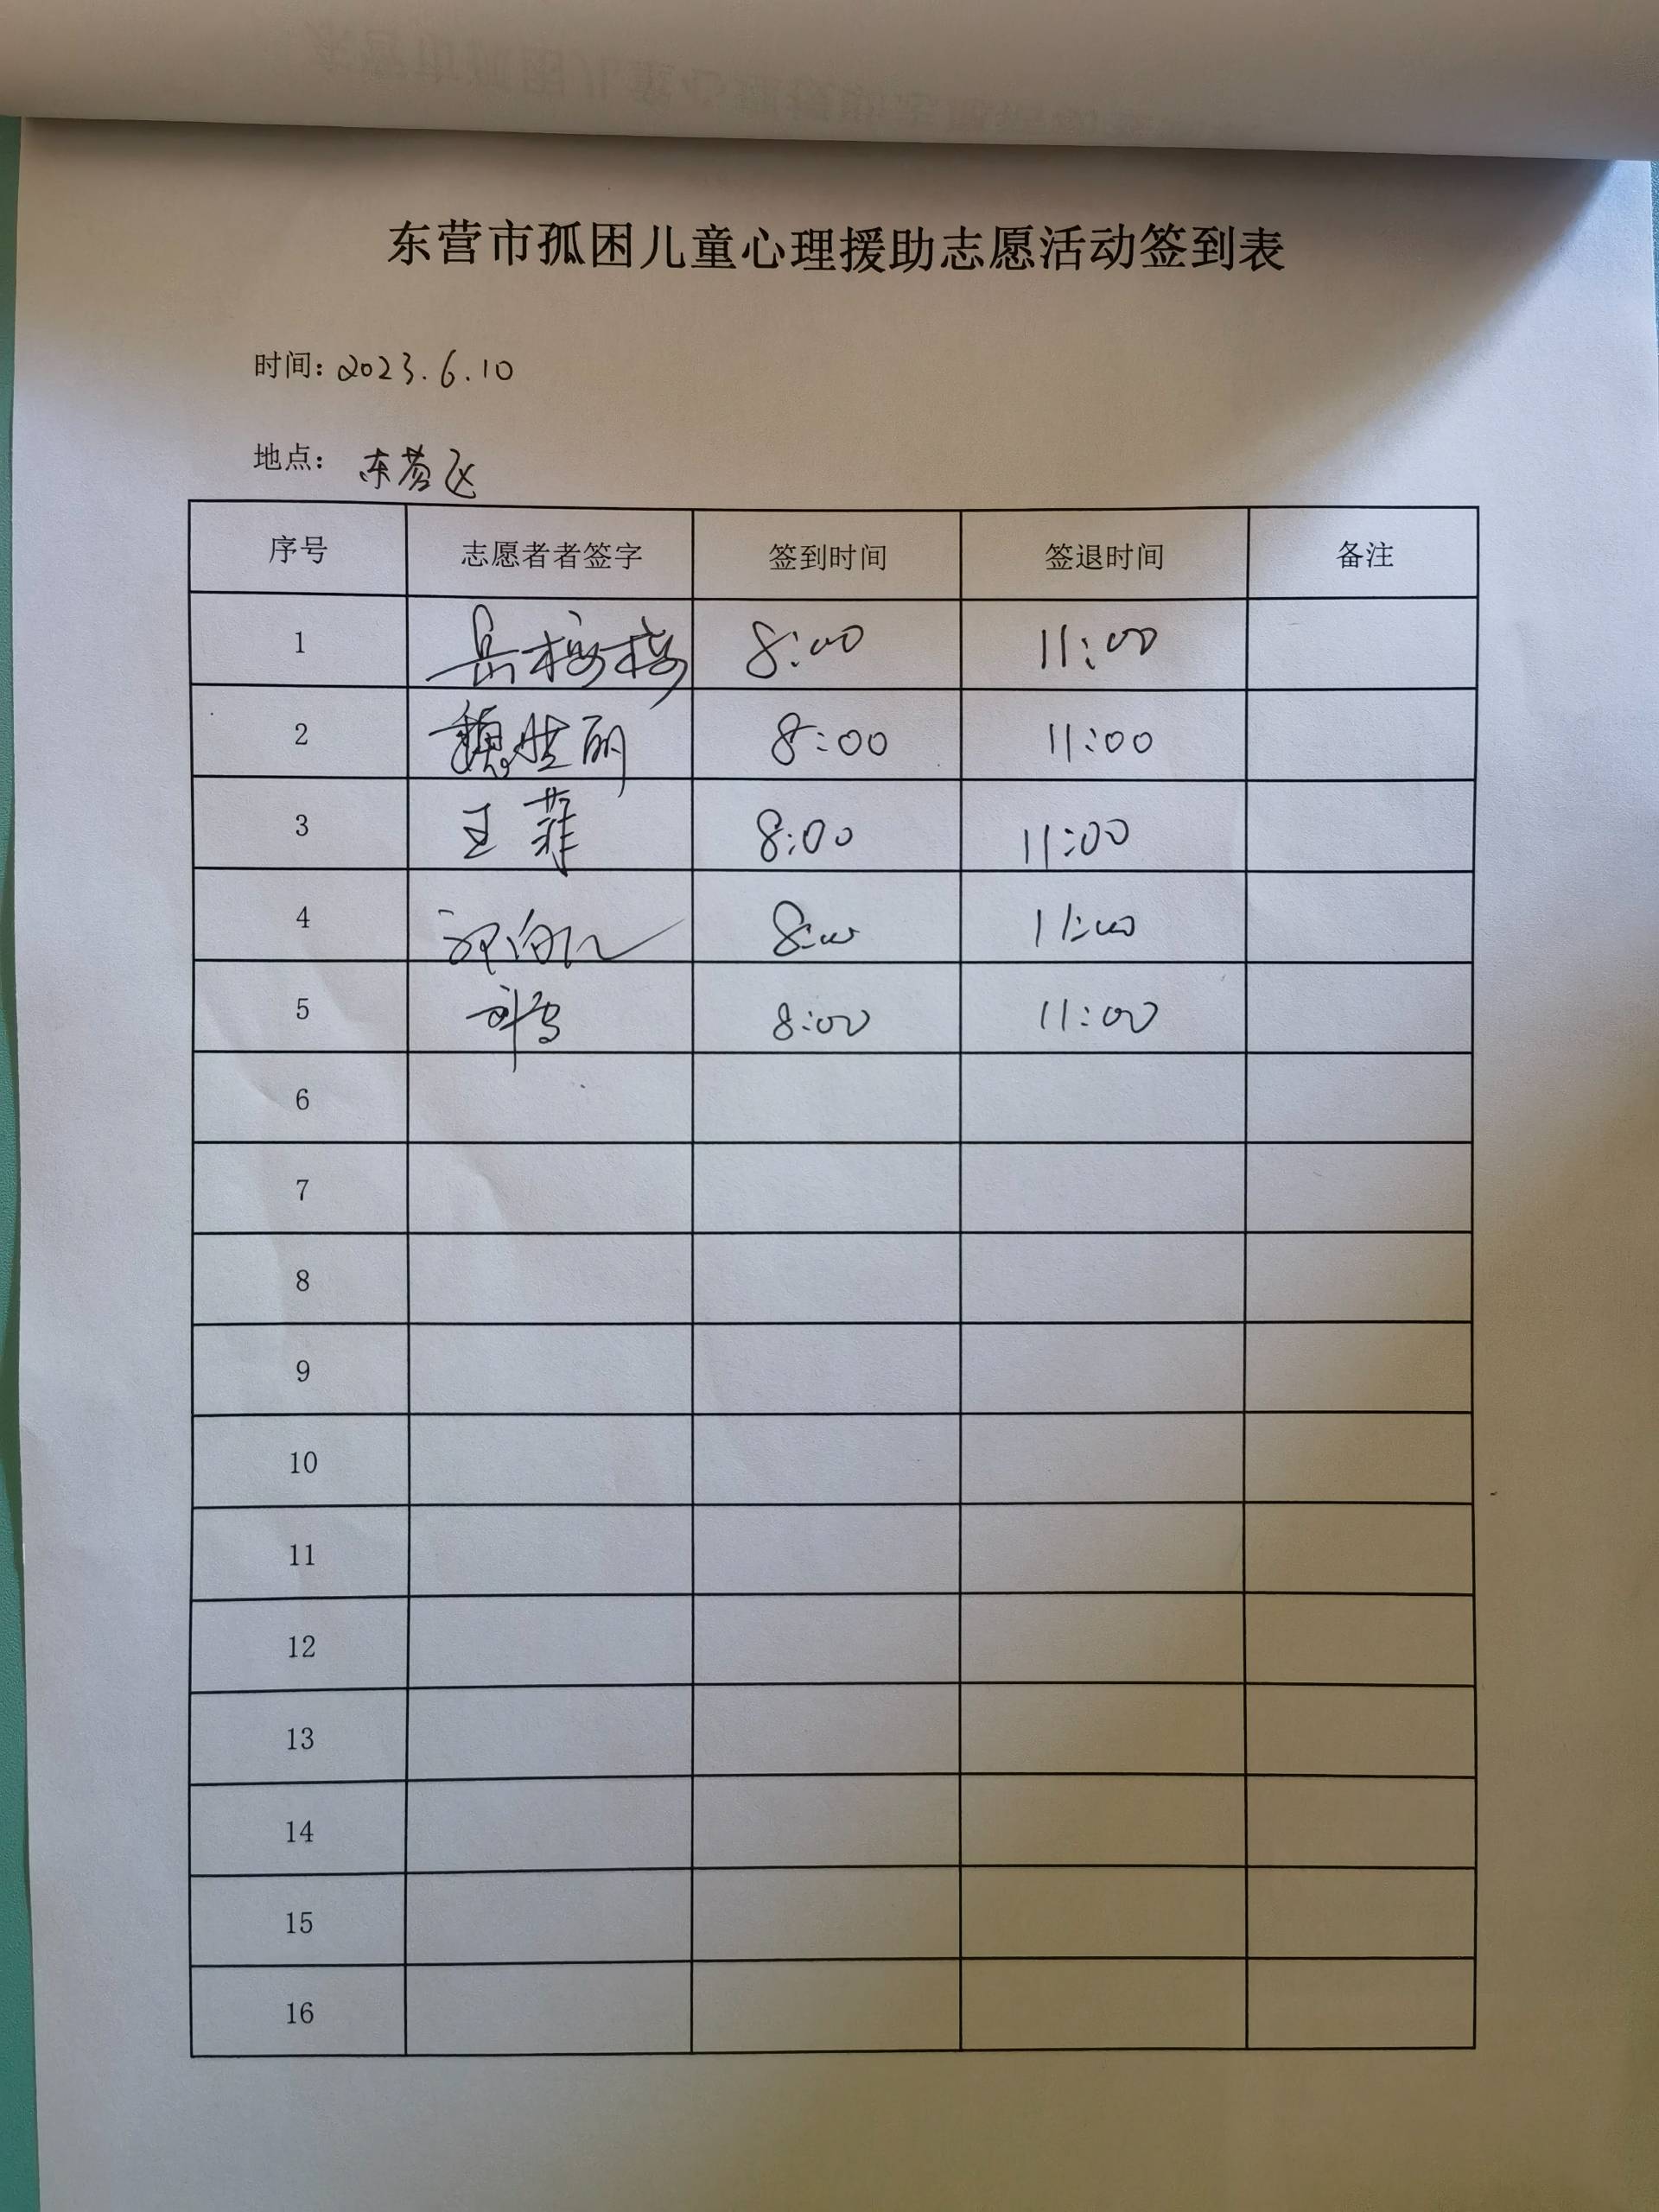 东营市孤困儿童心理援助志愿活动签到表
时间: 2023.6.10
地点: 东营区
序号 志愿者者签字 签到时间 签退时间 备注
1 岳樱樱 8:00 11:00
2 魏 丽 8:00 11:00
3 王菲 8:00 11:00
4 8:00 11:00
5 8:00 11:00
6
7
8
9
10
11
12
13
14
15
16